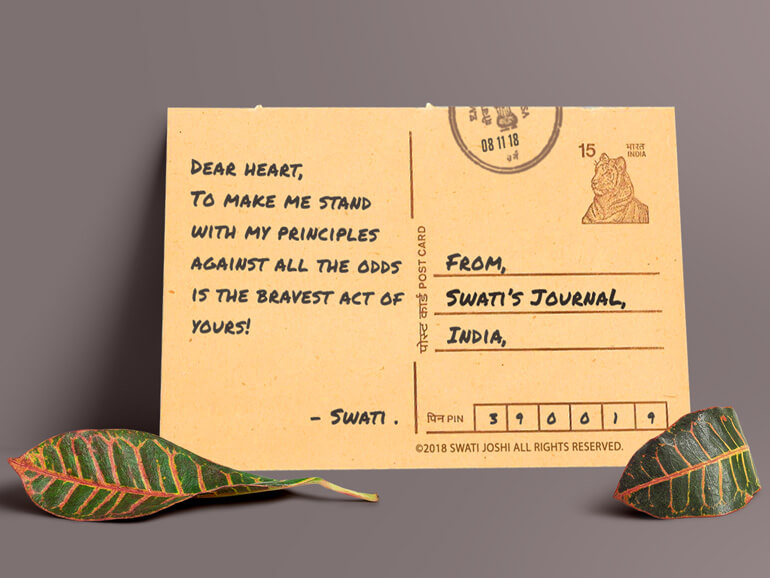 DEAR HEART,
TO MAKE ME STAND
WITH MY PRINCIPLES
AGAINST ALL THE ODDS
IS THE BRAVEST ACT OF
YOURS!
- SWATI .
पोस्ट कार्ड POST CARD
08 11 18
15 भारत
INDIA
FROM,
SWATI'S JOURNAL,
INDIA,
पिन PIN 3 9 0 0 1 9
©2018 SWATI JOSHI ALL RIGHTS RESERVED.